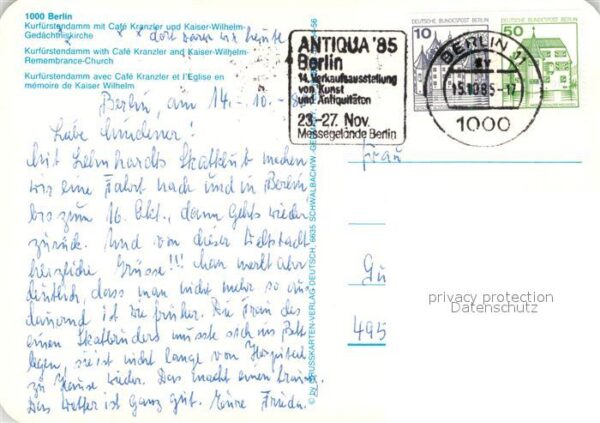 1000 Berlin
Kurfürstendamm mit Café Kranzler und Kaiser-Wilhelm-
Gedächtniskirche
x x dort waren wir heute
Kurfürstendamm with Café Kranzler and Kaiser-Wilhelm-
Remembrance-Church
Kurfürstendamm avec Café Kranzler et l'Eglise en
mémoire de Kaiser Wilhelm
Berlin, am 14.-10.-
Liebe
Mit Lehnhards Skatklub machen
wir eine Fahrt nach und in Berlin,
bis zum 16. Okt., dann gehts wieder
zurück. Und von dieser Weltstadt
herzliche Grüsse!!! man merkt aber
deutlich, dass man nicht mehr so aus
dauernd ist wie früher. Die Frau des
einen Skatbruders musste sich ins Bett
legen, sie ist nicht lange vom Hospital
zu Hause wieder. Das macht einen
Das Wetter ist ganz gut. Eure Frieda.
ANTIQUA '85
Berlin
14. Verkaufsausstellung
von Kunst
und Antiquitäten
23.-27. Nov.
Messegelände Berlin
DEUTSCHE BUNDESPOST BERLIN
10
DEUTSCHE BUNDESPOST BERLIN
50
BERLIN 11
15.10.85-17
1000
Frau
Gu
495
privacy protection
Datenschutz
KRUSSKARTEN-VERLAG-DEUTSCH, 6635 SCHWALBACH/W.